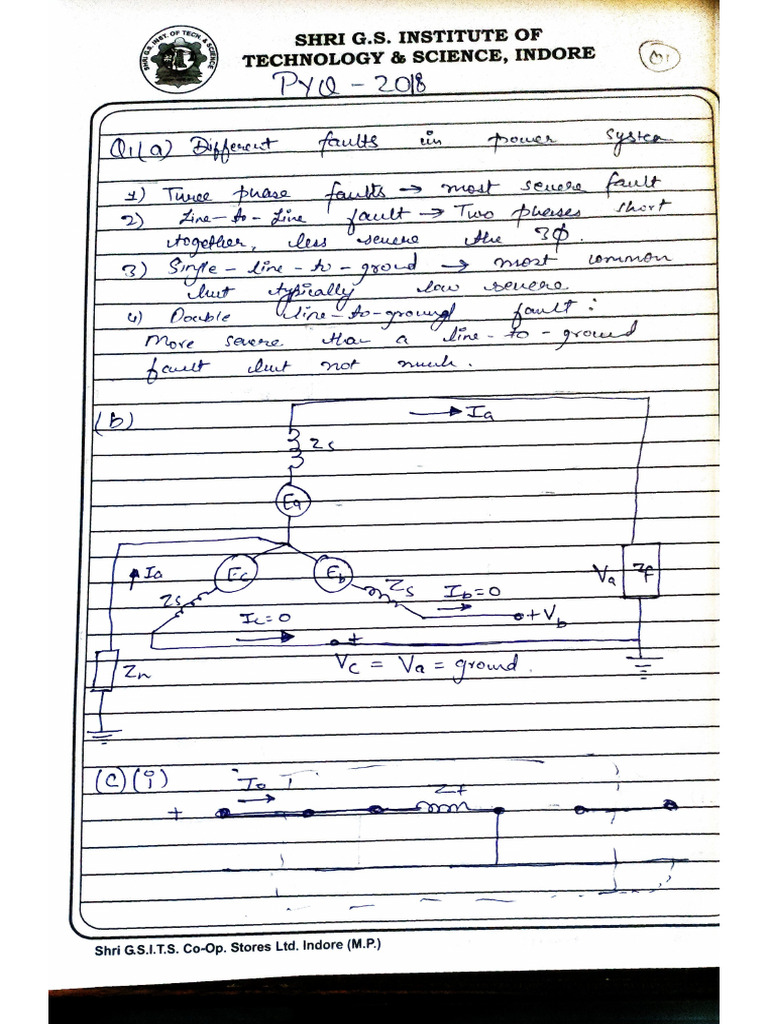 SHRI G.S. INST. OF TECH. & SCIENCE
SHRI G.S. INSTITUTE OF
TECHNOLOGY & SCIENCE, INDORE
01
PYQ - 2018
Q1(a) Different faults in power system
1) Three phase faults → most severe fault
2) Line-to-Line fault → Two phases short
together, less severe the 3Φ.
3) Single-line-to-ground → most common
but typically low severe
4) Double line-to-ground fault:
More severe than a line-to-ground
fault but not much.
(b)
→ Ia
Zs
Ea
Ia
Ec
Eb
Zs
Zs
Ib=0
+Vb
Va
Zf
Ic=0
+
Zn
Vc = Va = ground.
(C)(i)
Io
Zf
+
Shri G.S.I.T.S. Co-Op. Stores Ltd. Indore (M.P.)